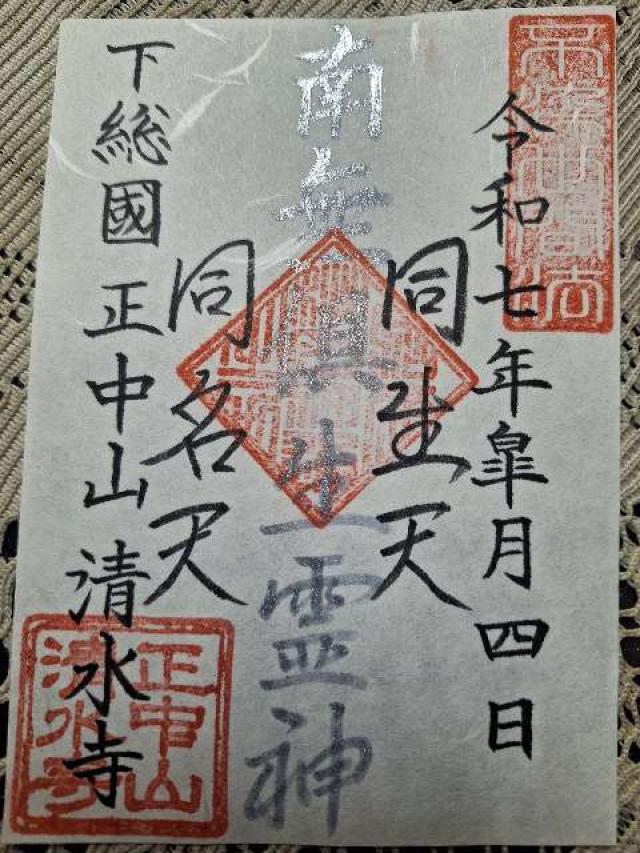 令和七年皐月四日
同生天
南無倶生霊神
同名天
下総國 正中山 清水寺
正中山
清水寺